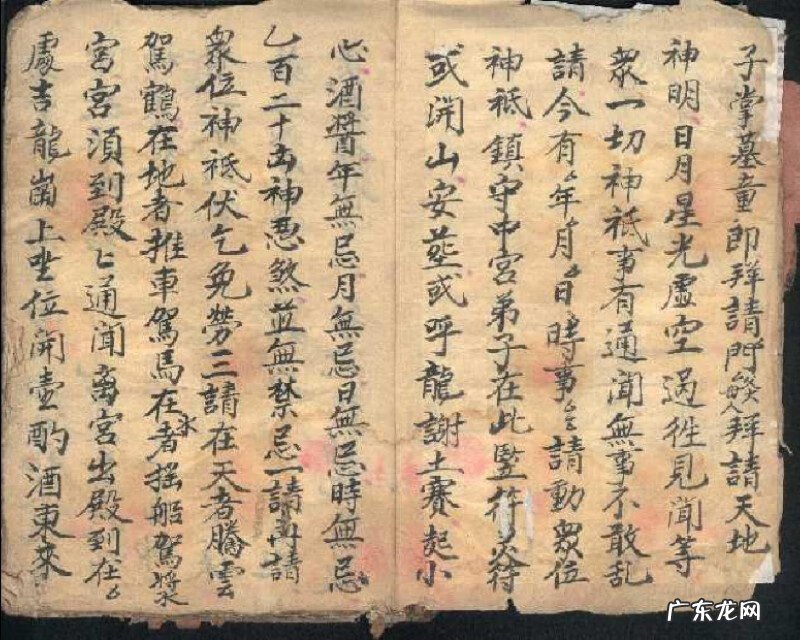 子掌墓童郎拜請門人拜請天地
神明日月星光虛空過往見聞等
眾一切神祇事有通聞無事不敢乱
請今有年月日時事請動眾位
神祇鎮守中宮弟子在此竪符
或開山安莝或呼龍謝土賽起小
心酒醬年無忌月無忌日無忌時無忌
乙百二十凶神惡煞並無禁忌一請再請
眾位神祇伏乞免勞三請在天者騰雲
駕鶴在地者推車駕馬在水者搖船駕槳
宮宮須到殿匕通聞离宮出殿到在
處吉龍崗上坐位開壺酌酒東來
广东龙网
WWW.GDRFXH.COM